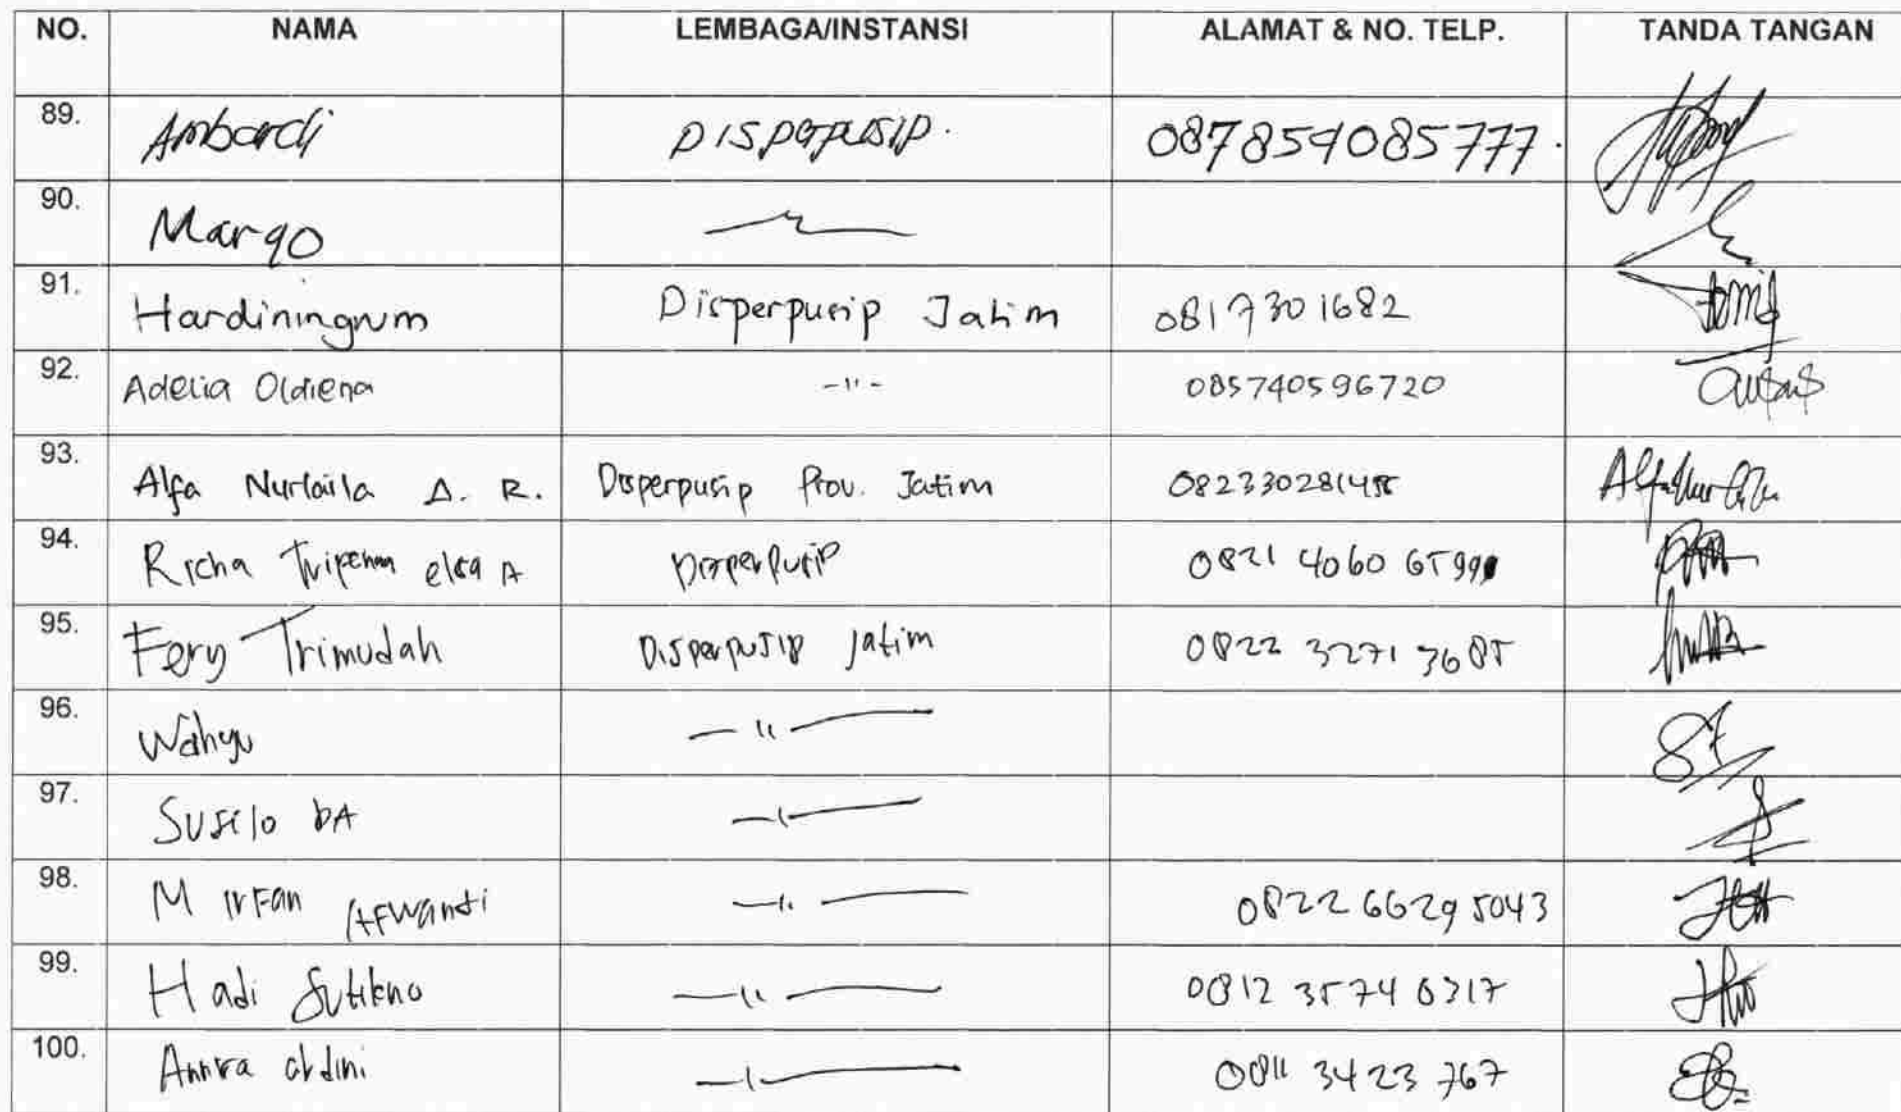 NO. NAMA LEMBAGA/INSTANSI ALAMAT & NO. TELP. TANDA TANGAN
89. Ambardi DISPERPUSIP. 087854085777.
90. Margo
91. Hardiningrum Disperpusip Jatim 0817301682
92. Adelia Oldiena -"- 085740596720
93. Alfa Nurlaila A. R. Disperpusip Prov. Jatim 082330281455
94. Richa elsa A Disperpusip 0821 4060
95. Fery Trimudah Disperpusip Jatim 0822 3271 3685
96. Wahyu — " —
97. Susilo DA — " —
98. M Irfan — " — 0822 6629 5043
99. Hadi Sutikno — " — 0812 3574 0317
100. — " — 0811 3423 767